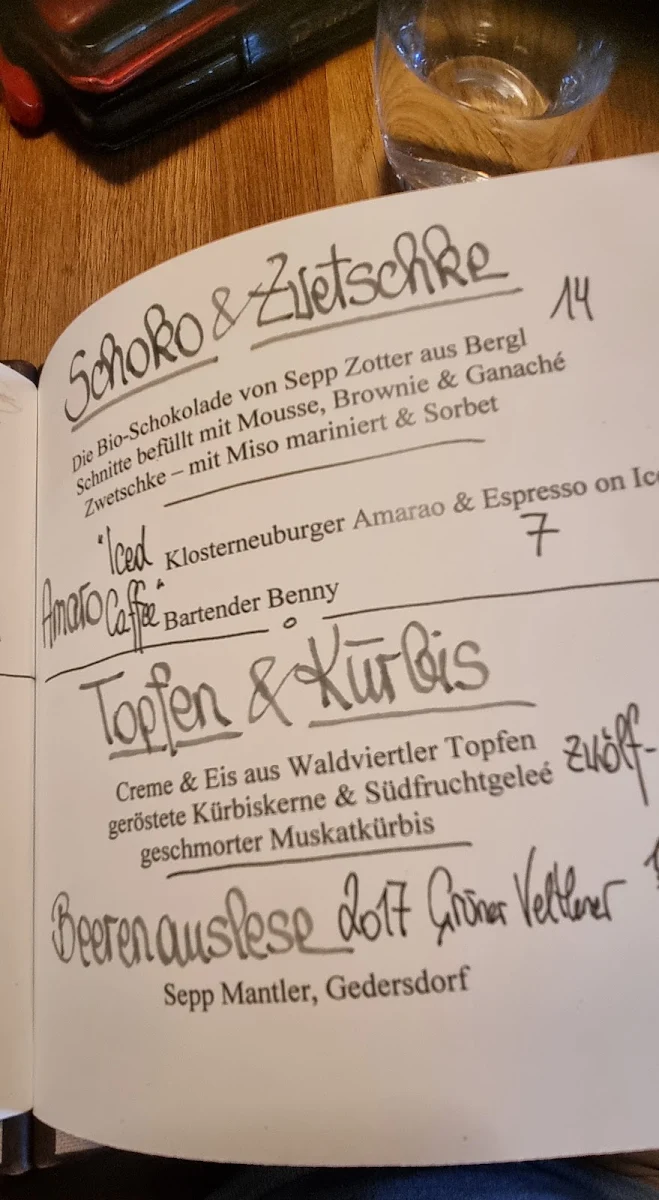 Schoko & Zwetschke 14
Die Bio-Schokolade von Sepp Zotter aus Bergl
Schnitte befüllt mit Mousse, Brownie & Ganaché
Zwetschke – mit Miso mariniert & Sorbet
"Iced Klosterneuburger Amarao & Espresso on Ice
7
Amaro Caffee" Bartender Benny
Topfen & Kürbis
Creme & Eis aus Waldviertler Topfen zwölf-
geröstete Kürbiskerne & Südfruchtgeleé
geschmorter Muskatkürbis
Beerenauslese 2017 Grüner Veltliner
Sepp Mantler, Gedersdorf